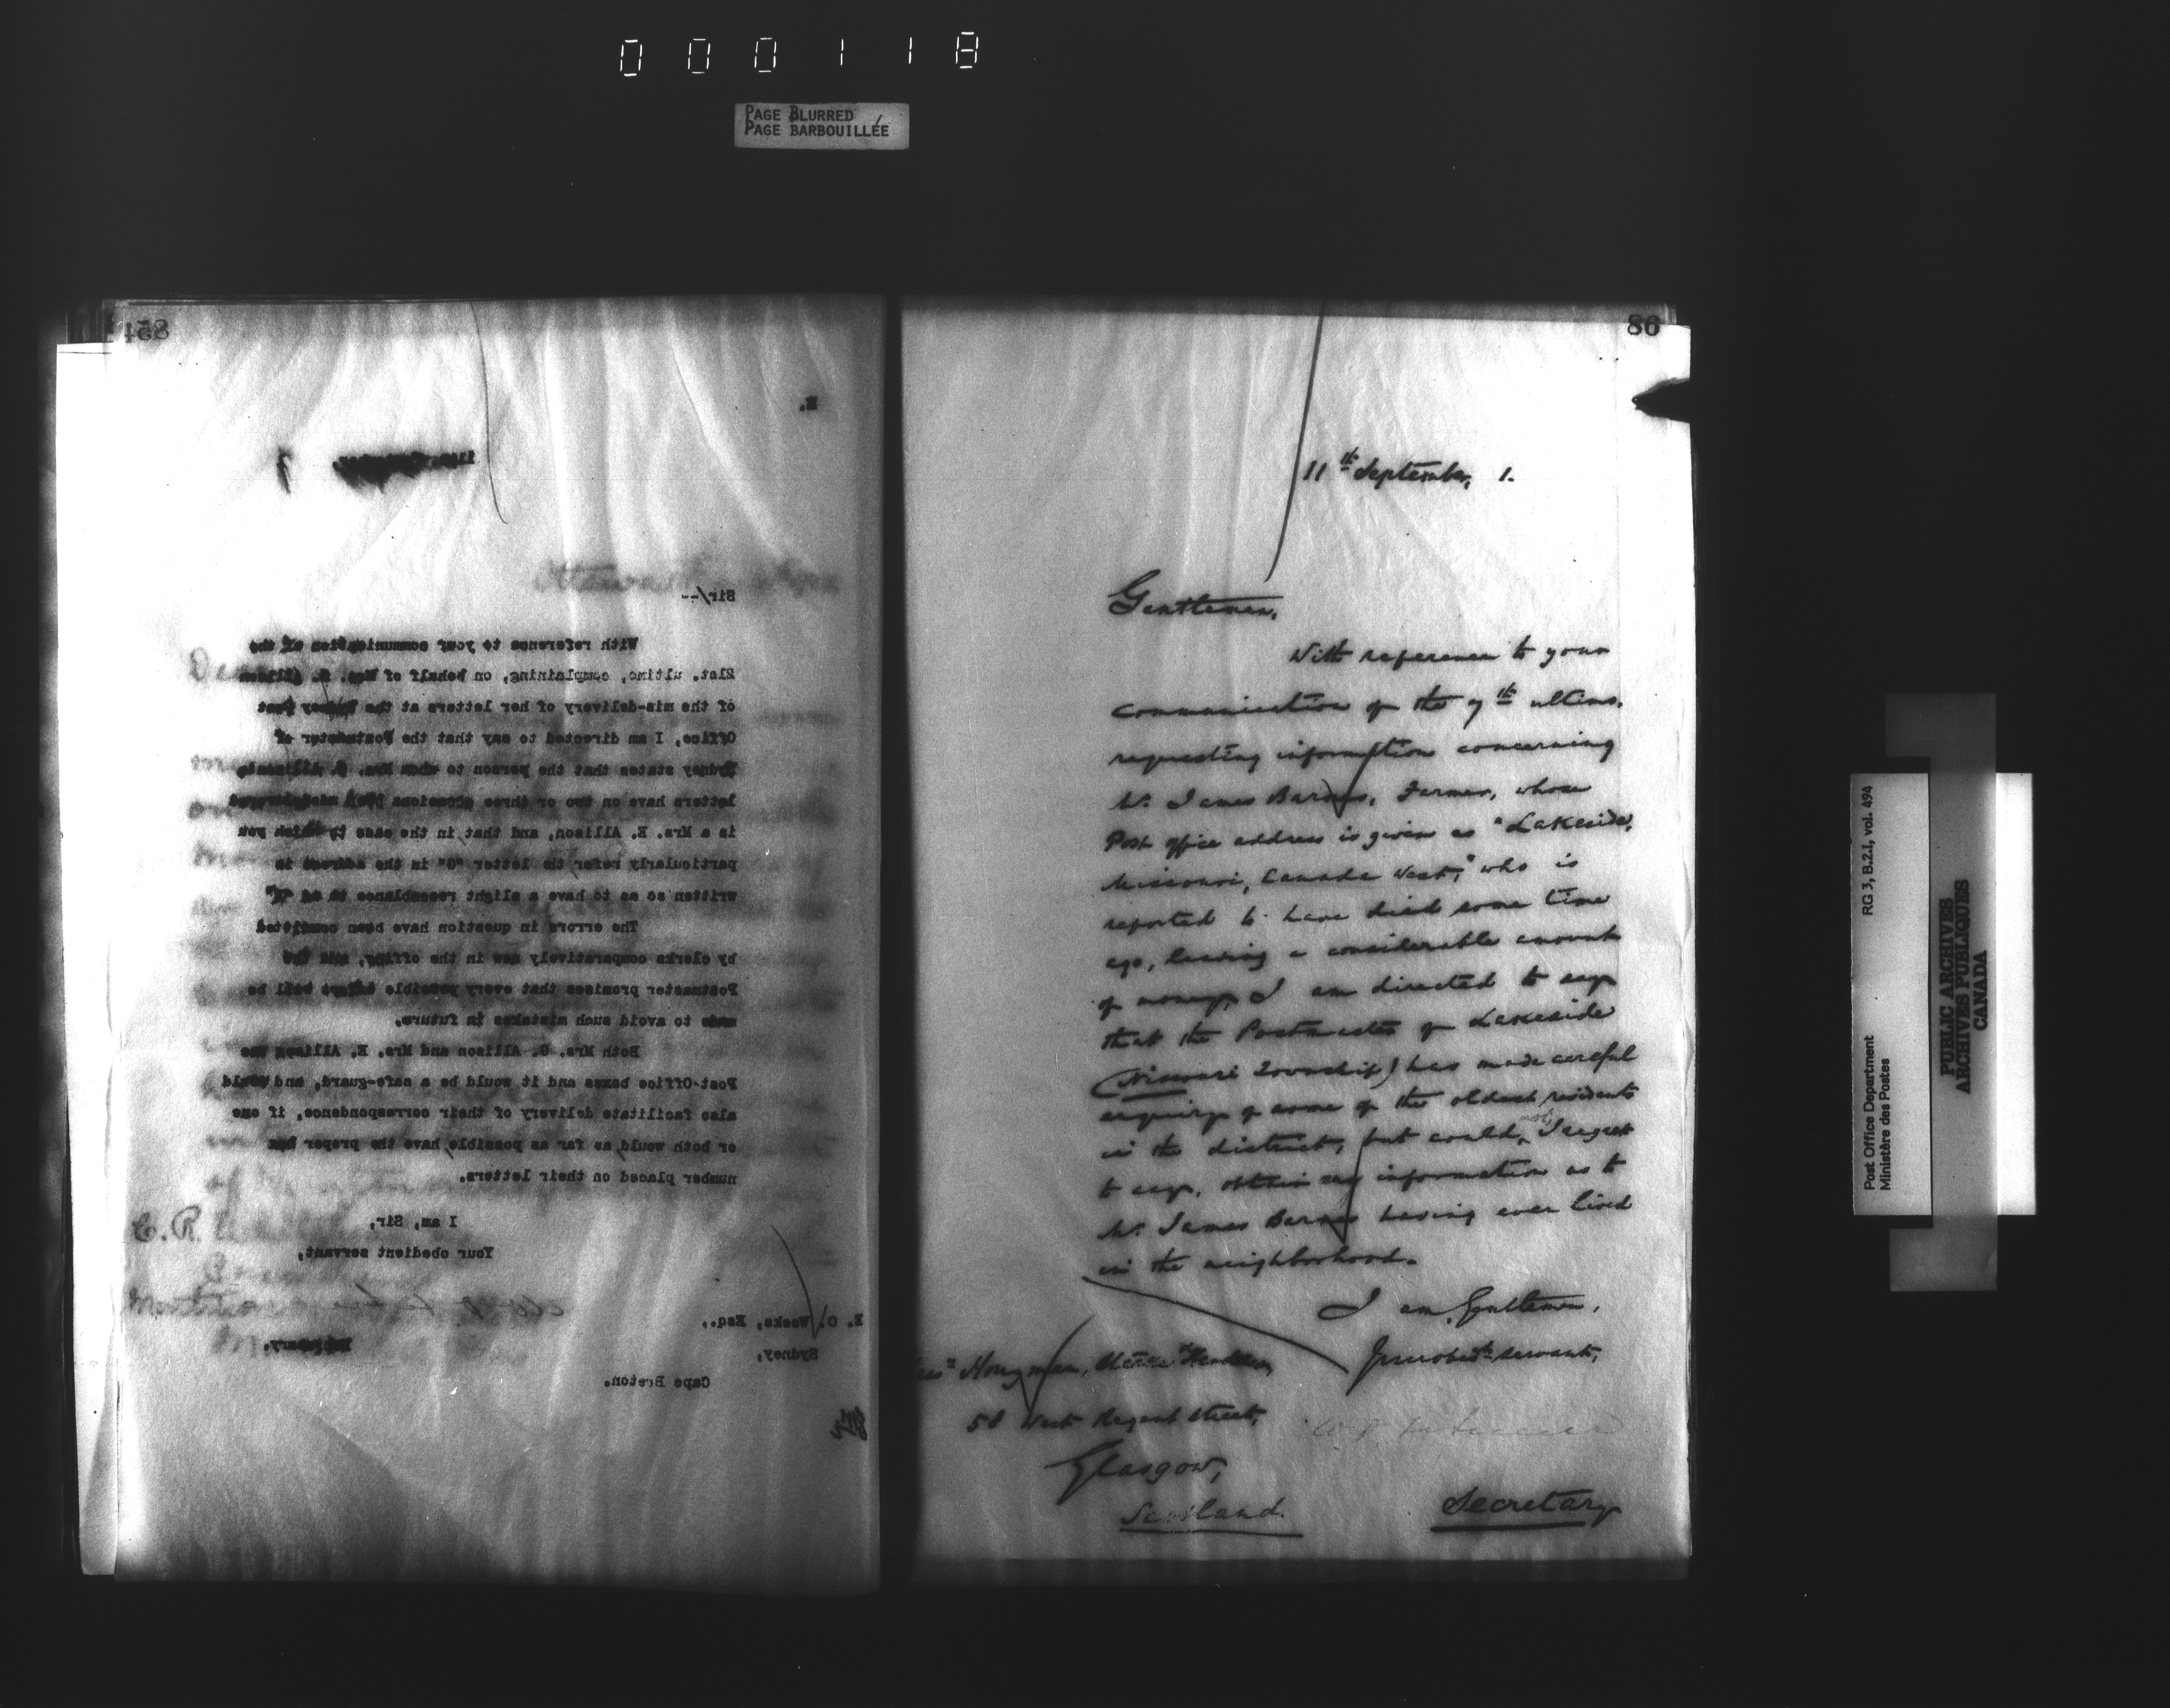 000118
PAGE BLURRED
PAGE BARBOUILLÉE
458
E.
Sir/--
With reference to your communication of the
21st. ultimo, complaining, on behalf of Mrs. G. Allison
of the mis-delivery of her letters at the Sydney Post
Office, I am directed to say that the Postmaster of
Sydney states that the person to whom Mrs. G. Allison's
letters have on two or three occasions been
is a Mrs. E. Allison, and that in the case to which you
particularly refer the letter "G" in the address is
written so as to have a slight resemblance to an
The errors in question have been committed
by clerks comparatively new in the office, and the
Postmaster promises that every possible effort will be
made to avoid such mistakes in future.
Both Mrs. G. Allison and Mrs. E. Allison
Post-Office boxes and it would be a safe-guard, and would
also facilitate delivery of their correspondence, if one
or both would, as far as possible, have the proper box
number placed on their letters.
I am, Sir,
Your obedient servant,
E. O. Weeks, Esq.,
Secretary.
Sydney,
Cape Breton.
86
11th September, 1.
Gentlemen,
With reference to your
communication of the 7th ultimo,
requesting information concerning
Mr. James Barnes, Farmer, whose
Post office address is given as "Lakeside,
Missouri, Canada West," who is
reported to have died some time
ago, leaving a considerable amount
of money, I am directed to say
that the Postmaster of Lakeside
(Nissouri Township) has made careful
enquiry of some of the oldest residents
in the district, but could, not, I regret
to say, obtain any information as to
Mr. James Barnes having ever lived
in the neighborhood.
I am, Gentlemen,
Your obedt. servant,
58 West Regent Street,
Glasgow,
Scotland.
Secretary
RG 3, B.2.1, vol. 494
Post Office Department
Ministère des Postes
PUBLIC ARCHIVES
ARCHIVES PUBLIQUES
CANADA